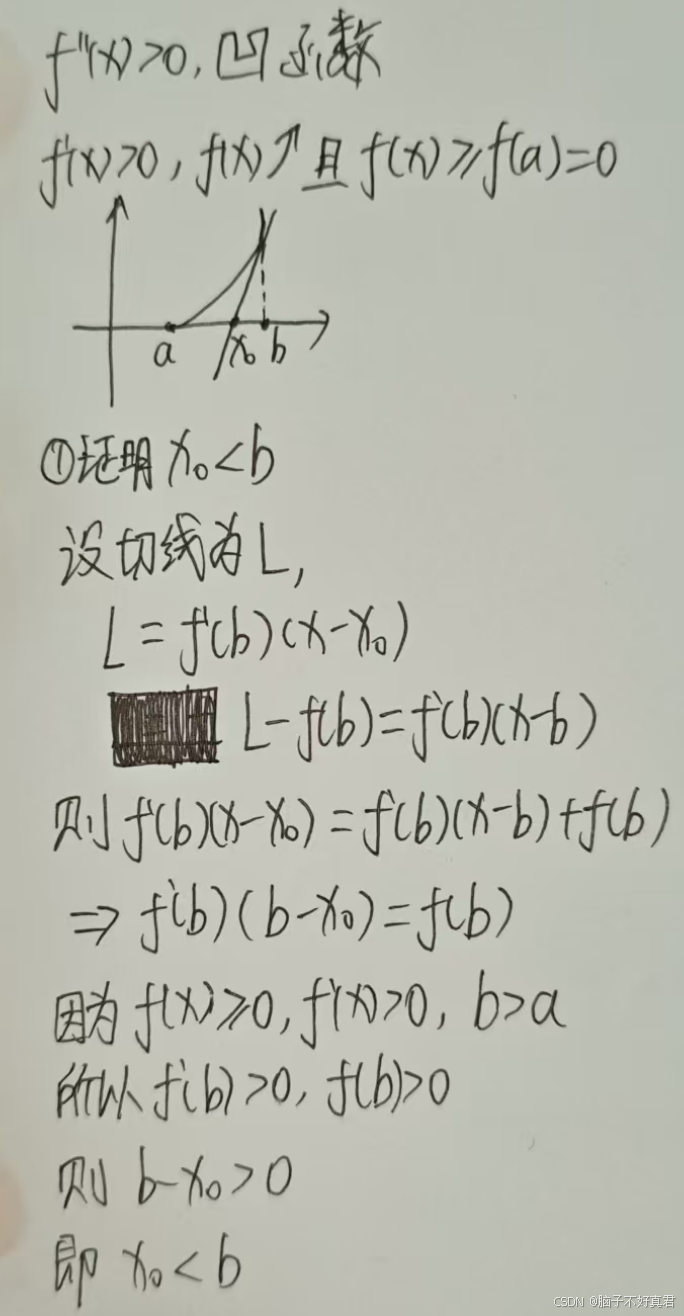 f''(x)>0,凹函数
f'(x)>0,f(x)↑且f(x)≥f(a)=0
a x₀ b
①证明x₀<b
设切线为L,
L=f'(b)(x-x₀)
L-f(b)=f'(b)(x-b)
则f'(b)(x-x₀)=f'(b)(x-b)+f(b)
⇒f'(b)(b-x₀)=f(b)
因为f(x)≥0,f'(x)>0,b>a
所以f'(b)>0,f(b)>0
则b-x₀>0
即x₀<b
CSDN @脑子不好真君